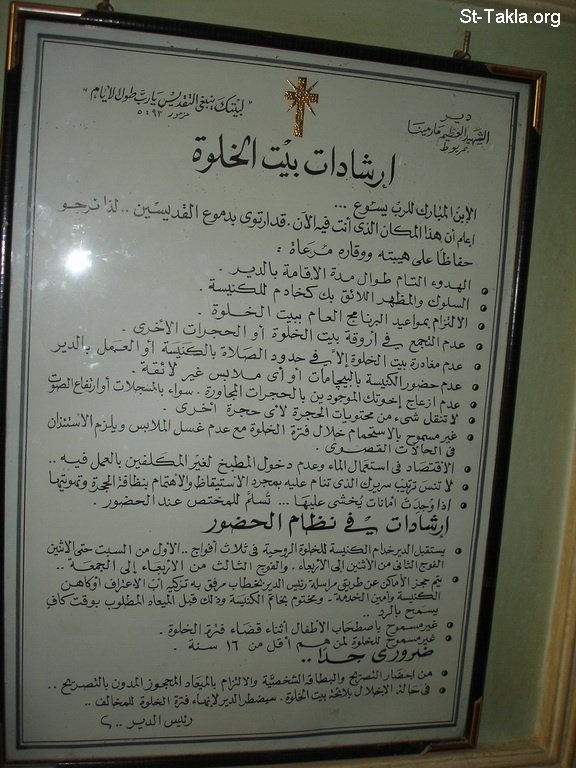 St-Takla.org
دير
الشهيد العظيم مارمينا
بمريوط
"لبيتك ينبغى التقديس يارب طول الأيام"
مزمور ٩٣ : ٥
إرشادات بيت الخلوة
الإبن المبارك للرب يسوع ...
إعلم أن هذا المكان الذى أنت فيه الآن .. قد ارتوى بدموع القديسين .. لذا نرجو
حفاظاً على هيبته ووقاره مرعاة :
الهدوء التام طوال مدة الاقامة بالدير .
السلوك والمظهر اللائق بك كخادم للكنيسة .
الالتزام بمواعيد البرنامج العام ببيت الخلوة .
عدم التجمع فى أروقة بيت الخلوة أو الحجرات الأخرى .
عدم مغادرة بيت الخلوة إلا فى حدود الصلاة بالكنيسة أو العمل بالدير
عدم حضور الكنيسة بالبيچامات أو أى ملابس غير لائقة .
عدم ازعاج إخوتك الموجودين بالحجرات المجاورة . سواء بالمسجلات أو ارتفاع الصوت
لا تنقل شىء من محتويات الحجرة لأى حجرة أخرى .
غير مسموح بالاستحمام خلال فترة الخلوة مع عدم غسل الملابس ويلزم الاستئذان
فى الحالات القصوى .
الاقتصاد فى استعمال الماء وعدم دخول المطبخ لغير المكلفين بالعمل فيه ..
لا تنس ترتيب سريرك الذى تنام عليه بمجرد الاستيقاظ والاهتمام بنظافة الحجرة وتهويتها
إذا وجدت أمانات يخشى عليها ... تسلم للمختص عند الحضور .
إرشادات فى نظام الحضور
يستقبل الدير خدام الكنيسة للخلوة الروحية فى ثلاث أفواج .. الأول من السبت حتى الاثنين
الفوج الثانى من الأثنين إلى الأربعاء . والفوج الثالث من الأربعاء إلى الجمعة ..
يتم حجز الأماكن عن طريق مراسلة رئيس الدير بخطاب مرفق به تزكية أب الاعتراف أو كاهن
الكنيسة وأمين الخدمة - ومختوم بخاتم الكنيسة وذلك قبل الميعاد المطلوب بوقت كافٍ
يسمح بالرد ..
غير مسموح باصطحاب الأطفال أثناء قضاء فترة الخلوة .
غير مسموح للخلوة لمن هم أقل من ١٦ سنة .
ضرورى جداً ..
من احضار التصريح والبطاقة الشخصية والالتزام بالميعاد المحجوز المدون بالتصريح ..
فى حالة الإخلال بلائحة بيت الخلوة . سيضطر الدير لإنهاء فترة الخلوة للمخالف ..
رئيس الدير ..